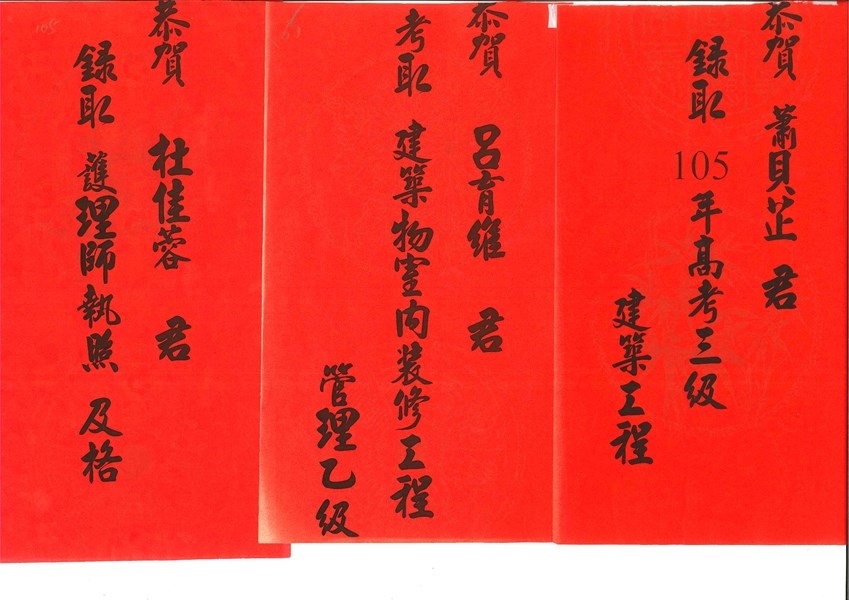 恭賀 蕭貝芷 君
錄取 105 年高考三級
建築工程
恭賀 呂育維 君
考取 建築物室內裝修工程
管理乙級
恭賀 杜佳蓉 君
錄取 護理師執照 及格
105